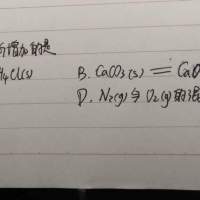 所增加的是
H4Cl(s) B. CaCO3(s) ══ CaO
D. N2(g)与O2(g)的混